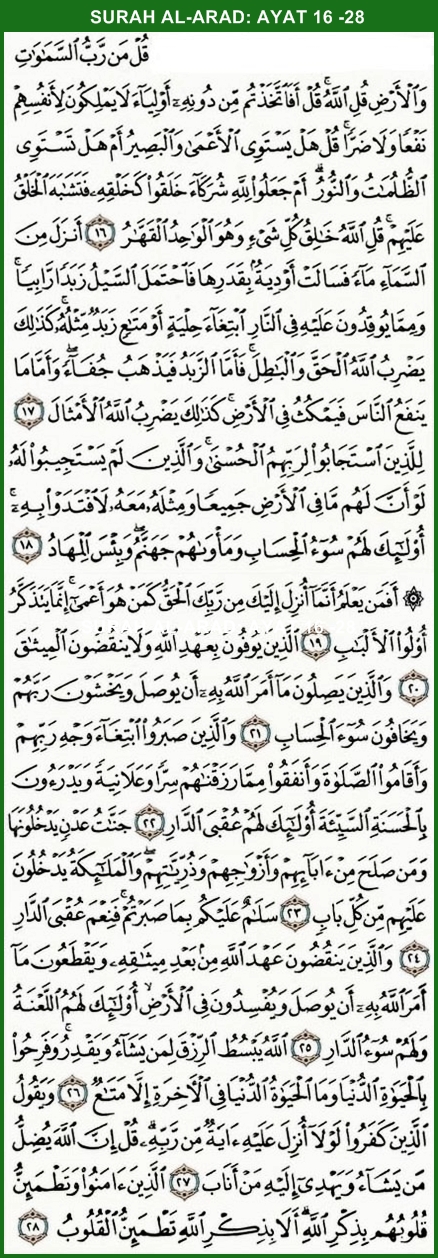 SURAH AL-ARAD: AYAT 16 -28
قُلْ مَن رَّبُّ ٱلسَّمَٰوَٰتِ
وَٱلْأَرْضِ قُلِ ٱللَّهُ ۚ قُلْ أَفَٱتَّخَذْتُم مِّن دُونِهِۦٓ أَوْلِيَآءَ لَا يَمْلِكُونَ لِأَنفُسِهِمْ
نَفْعًا وَلَا ضَرًّا ۚ قُلْ هَلْ يَسْتَوِى ٱلْأَعْمَىٰ وَٱلْبَصِيرُ أَمْ هَلْ تَسْتَوِى
ٱلظُّلُمَٰتُ وَٱلنُّورُ ۗ أَمْ جَعَلُوا۟ لِلَّهِ شُرَكَآءَ خَلَقُوا۟ كَخَلْقِهِۦ فَتَشَٰبَهَ ٱلْخَلْقُ
عَلَيْهِمْ ۚ قُلِ ٱللَّهُ خَٰلِقُ كُلِّ شَىْءٍ وَهُوَ ٱلْوَٰحِدُ ٱلْقَهَّٰرُ ١٦ أَنزَلَ مِنَ
ٱلسَّمَآءِ مَآءً فَسَالَتْ أَوْدِيَةٌۢ بِقَدَرِهَا فَٱحْتَمَلَ ٱلسَّيْلُ زَبَدًا رَّابِيًا ۚ
وَمِمَّا يُوقِدُونَ عَلَيْهِ فِى ٱلنَّارِ ٱبْتِغَآءَ حِلْيَةٍ أَوْ مَتَٰعٍ زَبَدٌ مِّثْلُهُۥ ۚ كَذَٰلِكَ
يَضْرِبُ ٱللَّهُ ٱلْحَقَّ وَٱلْبَٰطِلَ ۚ فَأَمَّا ٱلزَّبَدُ فَيَذْهَبُ جُفَآءً ۖ وَأَمَّا مَا
يَنفَعُ ٱلنَّاسَ فَيَمْكُثُ فِى ٱلْأَرْضِ ۚ كَذَٰلِكَ يَضْرِبُ ٱللَّهُ ٱلْأَمْثَالَ ١٧
لِلَّذِينَ ٱسْتَجَابُوا۟ لِرَبِّهِمُ ٱلْحُسْنَىٰ ۚ وَٱلَّذِينَ لَمْ يَسْتَجِيبُوا۟ لَهُۥ
لَوْ أَنَّ لَهُم مَّا فِى ٱلْأَرْضِ جَمِيعًا وَمِثْلَهُۥ مَعَهُۥ لَٱفْتَدَوْا۟ بِهِۦٓ ۚ
أُو۟لَٰٓئِكَ لَهُمْ سُوٓءُ ٱلْحِسَابِ وَمَأْوَىٰهُمْ جَهَنَّمُ ۖ وَبِئْسَ ٱلْمِهَادُ ١٨
۞ أَفَمَن يَعْلَمُ أَنَّمَآ أُنزِلَ إِلَيْكَ مِن رَّبِّكَ ٱلْحَقُّ كَمَنْ هُوَ أَعْمَىٰٓ ۚ إِنَّمَا يَتَذَكَّرُ
أُو۟لُوا۟ ٱلْأَلْبَٰبِ ١٩ ٱلَّذِينَ يُوفُونَ بِعَهْدِ ٱللَّهِ وَلَا يَنقُضُونَ ٱلْمِيثَٰقَ
٢٠ وَٱلَّذِينَ يَصِلُونَ مَآ أَمَرَ ٱللَّهُ بِهِۦٓ أَن يُوصَلَ وَيَخْشَوْنَ رَبَّهُمْ
وَيَخَافُونَ سُوٓءَ ٱلْحِسَابِ ٢١ وَٱلَّذِينَ صَبَرُوا۟ ٱبْتِغَآءَ وَجْهِ رَبِّهِمْ
وَأَقَامُوا۟ ٱلصَّلَوٰةَ وَأَنفَقُوا۟ مِمَّا رَزَقْنَٰهُمْ سِرًّا وَعَلَانِيَةً وَيَدْرَءُونَ
بِٱلْحَسَنَةِ ٱلسَّيِّئَةَ أُو۟لَٰٓئِكَ لَهُمْ عُقْبَى ٱلدَّارِ ٢٢ جَنَّٰتُ عَدْنٍ يَدْخُلُونَهَا
وَمَن صَلَحَ مِنْ ءَابَآئِهِمْ وَأَزْوَٰجِهِمْ وَذُرِّيَّٰتِهِمْ ۖ وَٱلْمَلَٰٓئِكَةُ يَدْخُلُونَ
عَلَيْهِم مِّن كُلِّ بَابٍ ٢٣ سَلَٰمٌ عَلَيْكُم بِمَا صَبَرْتُمْ ۚ فَنِعْمَ عُقْبَى ٱلدَّارِ
٢٤ وَٱلَّذِينَ يَنقُضُونَ عَهْدَ ٱللَّهِ مِنۢ بَعْدِ مِيثَٰقِهِۦ وَيَقْطَعُونَ مَآ
أَمَرَ ٱللَّهُ بِهِۦٓ أَن يُوصَلَ وَيُفْسِدُونَ فِى ٱلْأَرْضِ ۙ أُو۟لَٰٓئِكَ لَهُمُ ٱللَّعْنَةُ
وَلَهُمْ سُوٓءُ ٱلدَّارِ ٢٥ ٱللَّهُ يَبْسُطُ ٱلرِّزْقَ لِمَن يَشَآءُ وَيَقْدِرُ ۚ وَفَرِحُوا۟
بِٱلْحَيَوٰةِ ٱلدُّنْيَا وَمَا ٱلْحَيَوٰةُ ٱلدُّنْيَا فِى ٱلْءَاخِرَةِ إِلَّا مَتَٰعٌ ٢٦ وَيَقُولُ
ٱلَّذِينَ كَفَرُوا۟ لَوْلَآ أُنزِلَ عَلَيْهِ ءَايَةٌ مِّن رَّبِّهِۦ ۗ قُلْ إِنَّ ٱللَّهَ يُضِلُّ
مَن يَشَآءُ وَيَهْدِىٓ إِلَيْهِ مَنْ أَنَابَ ٢٧ ٱلَّذِينَ ءَامَنُوا۟ وَتَطْمَئِنُّ
قُلُوبُهُم بِذِكْرِ ٱللَّهِ ۗ أَلَا بِذِكْرِ ٱللَّهِ تَطْمَئِنُّ ٱلْقُلُوبُ ٢٨